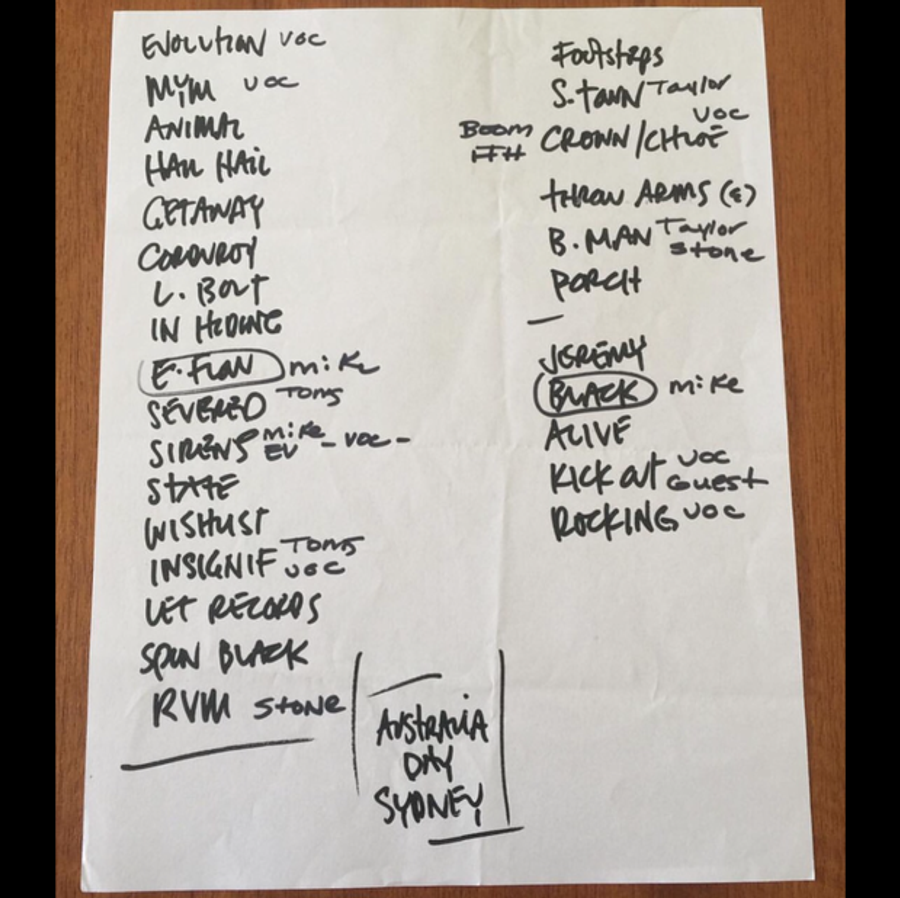 EVOLUTION VOC
MYM VOC
ANIMAL
HAIL HAIL
GETAWAY
CORDUROY
L. BOLT
IN HIDING
E. FLOW mike
SEVERED TOMS
SIRENS mike EV - VOC -
STATE
WISHLIST
INSIGNIF TOMS VOC
LET RECORDS
SPIN BLACK
RVM STONE
AUSTRALIA
DAY
SYDNEY
Footsteps
S. TOWN Taylor
VOC
BOOM CROWN / CHLOE
THROW ARMS (E)
B. MAN Taylor Stone
PORCH
JEREMY
BLACK mike
ALIVE
KICK OUT VOC Guest
ROCKING VOC